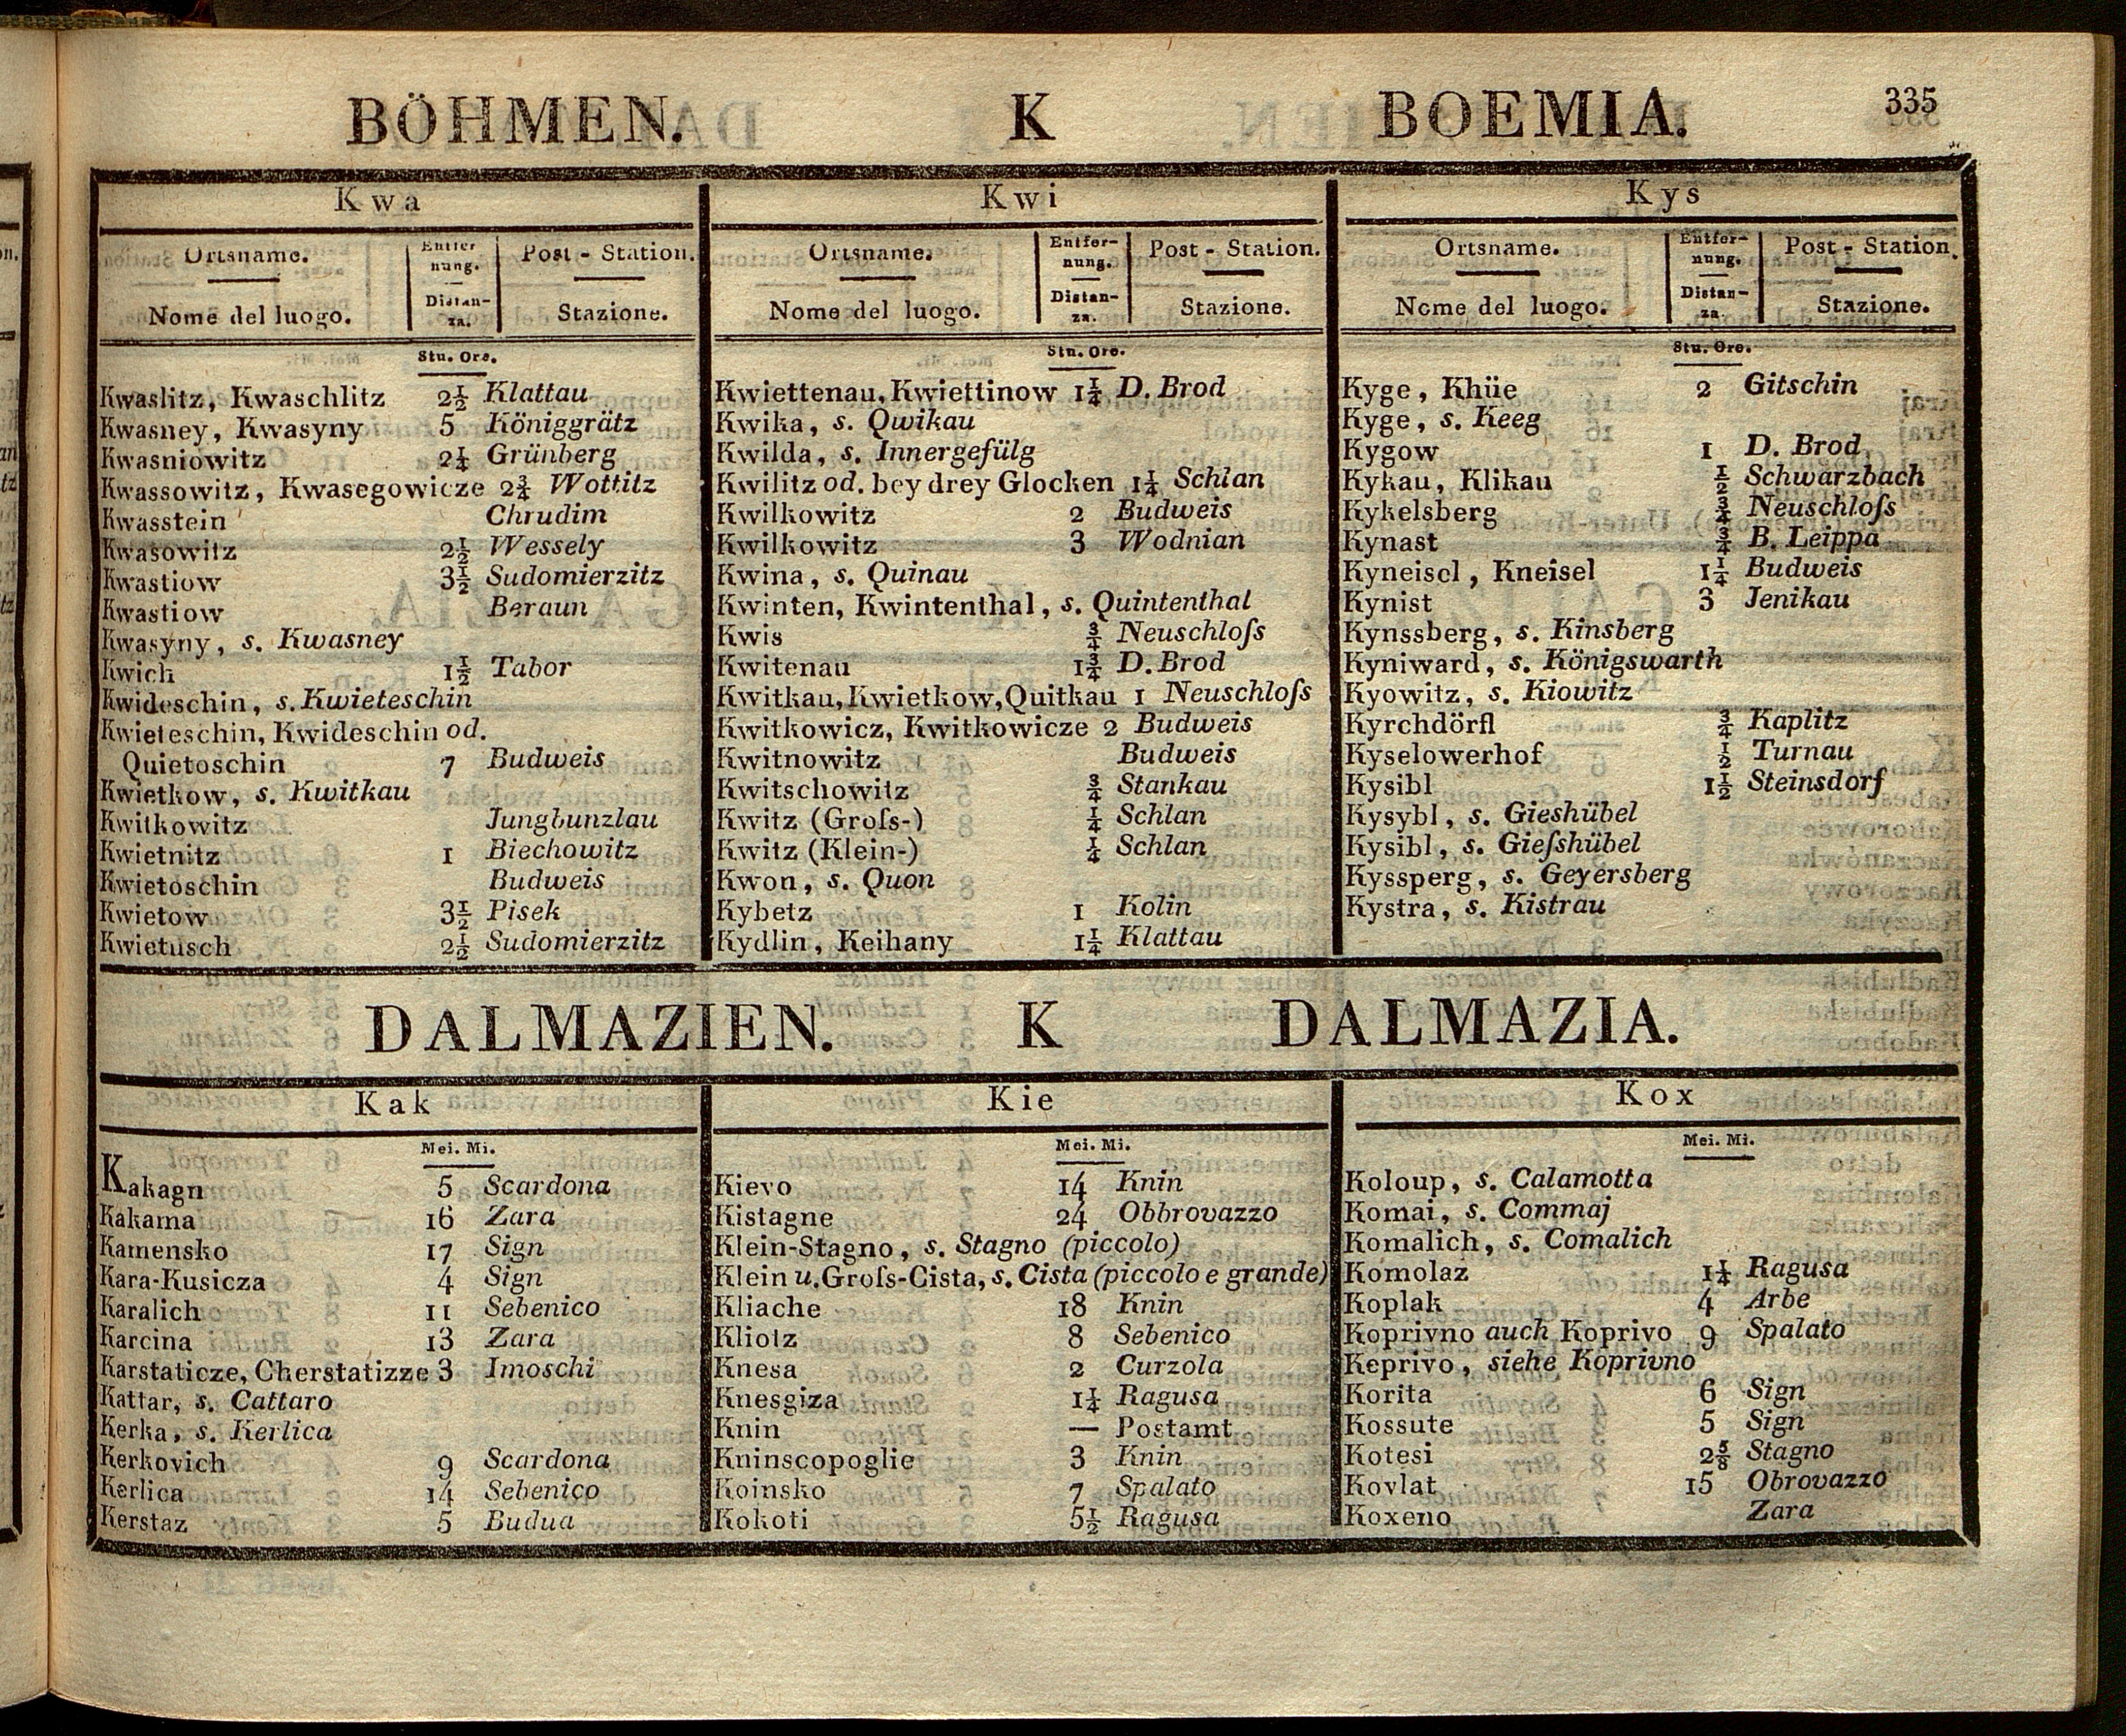 BÖHMEN. K BOEMIA. 335
Kwa
Ortsname. Entfer nung. Post - Station.
Nome del luogo. Distan-za. Stazione.
Stu. Ore.
Kwaslitz, Kwaschlitz 2½ Klattau
Kwasney, Kwasyny 5 Königgrätz
Kwasniowitz 2¼ Grünberg
Kwassowitz, Kwasegowicze 2¾ Wottitz
Kwasstein Chrudim
Kwasowitz 2½ Wessely
Kwastiow 3½ Sudomierzitz
Kwastiow Beraun
Kwasyny, s. Kwasney
Kwich 1½ Tabor
Kwideschin, s. Kwieteschin
Kwieteschin, Kwideschin od.
Quietoschin 7 Budweis
Kwietkow, s. Kwitkau
Kwitkowitz Jungbunzlau
Kwietnitz 1 Biechowitz
Kwietoschin Budweis
Kwietow 3½ Pisek
Kwietusch 2½ Sudomierzitz
Kwi
Ortsname. Entfer-nung. Post - Station.
Nome del luogo. Distan-za. Stazione.
Stu. Ore.
Kwiettenau, Kwiettinow 1¼ D. Brod
Kwika, s. Qwikau
Kwilda, s. Innergefülg
Kwilitz od. bey drey Glocken 1¼ Schlan
Kwilkowitz 2 Budweis
Kwilkowitz 3 Wodnian
Kwina, s. Quinau
Kwinten, Kwintenthal, s. Quintenthal
Kwis ¾ Neuschloſs
Kwitenau 1¾ D. Brod
Kwitkau, Kwietkow, Quitkau 1 Neuschloſs
Kwitkowicz, Kwitkowicze 2 Budweis
Kwitnowitz Budweis
Kwitschowitz ¾ Stankau
Kwitz (Groſs-) ¼ Schlan
Kwitz (Klein-) ¼ Schlan
Kwon, s. Quon
Kybetz 1 Kolin
Kydlin, Keihany 1¼ Klattau
Kys
Ortsname. Entfer-nung. Post - Station.
Nome del luogo. Distan-za. Stazione.
Stu. Ore.
Kyge, Khüe 2 Gitschin
Kyge, s. Keeg
Kygow 1 D. Brod
Kykau, Klikau ½ Schwarzbach
Kykelsberg ¾ Neuschloſs
Kynast ¾ B. Leippa
Kyneisel, Kneisel 1¼ Budweis
Kynist 3 Jenikau
Kynssberg, s. Kinsberg
Kyniward, s. Königswarth
Kyowitz, s. Kiowitz
Kyrchdörfl ¾ Kaplitz
Kyselowerhof ½ Turnau
Kysibl 1½ Steinsdorf
Kysybl, s. Gieshübel
Kysibl, s. Gieſshübel
Kyssperg, s. Geyersberg
Kystra, s. Kistrau
DALMAZIEN. K DALMAZIA.
Kak
Mei. Mi.
Kakagn 5 Scardona
Kakama 16 Zara
Kamensko 17 Sign
Kara-Kusicza 4 Sign
Karalich 11 Sebenico
Karcina 13 Zara
Karstaticze, Cherstatizze 3 Imoschi
Kattar, s. Cattaro
Kerka, s. Kerlica
Kerkovich 9 Scardona
Kerlica 14 Sebenico
Kerstaz 5 Budua
Kie
Mei. Mi.
Kievo 14 Knin
Kistagne 24 Obbrovazzo
Klein-Stagno, s. Stagno (piccolo)
Klein u. Groſs-Cista, s. Cista (piccolo e grande)
Kliache 18 Knin
Kliotz 8 Sebenico
Knesa 2 Curzola
Knesgiza 1¼ Ragusa
Knin — Postamt
Kninscopoglie 3 Knin
Koinsko 7 Spalato
Kokoti 5½ Ragusa
Kox
Mei. Mi.
Koloup, s. Calamotta
Komai, s. Commaj
Komalich, s. Comalich
Komolaz 1¼ Ragusa
Koplak 4 Arbe
Koprivno auch Koprivo 9 Spalato
Keprivo, siehe Koprivno
Korita 6 Sign
Kossute 5 Sign
Kotesi 2⅝ Stagno
Kovlat 15 Obrovazzo
Koxeno Zara